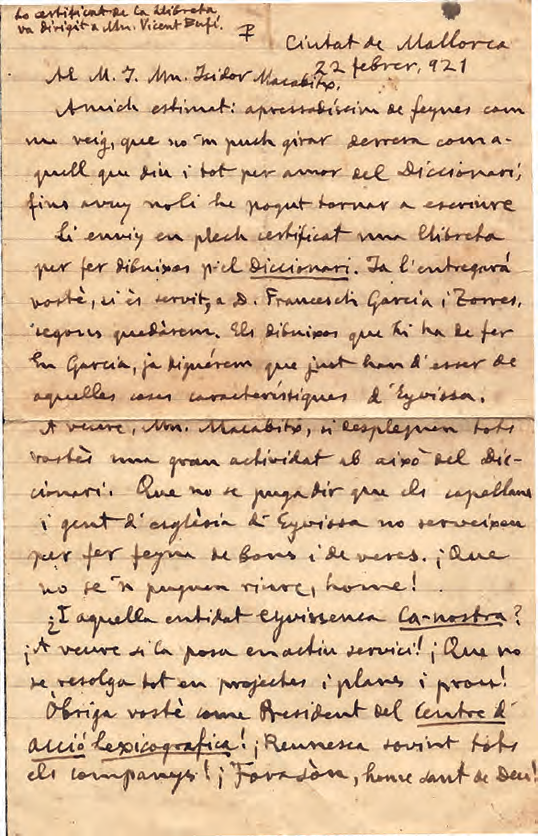 Lo certificat de la llibreta
va dirigit a Mn. Vicent Bufí.
Ciutat de Mallorca
22 febrer, 921
Al M. I. Mn. Isidor Macabitx.
Amich estimat: apressadissim de feynes com
me veig, que no 'm puch girar derrera com a-
quell que diu i tot per amor del Diccionari;
fins avuy no li he pogut tornar a escriure
Li enviy en plech certificat una llibreta
per fer dibuixos p'el Diccionari. Ja l'entregará
vostè, si ès servit, a D. Francesch Garcia i Torres,
segons quedàrem. Els dibuixos que hi ha de fer
En Garcia, ja diguérem que just han d'esser de
aquelles coses característiques d'Eyvissa.
A veure, Mn. Macabitx, si despleguen tots
vostès una gran actividat ab això del Dic-
cionari. Que no se puga dir que els capellans
i gent d'església d'Eyvissa no serveixen
per fer feyna de bons i de veres. ¡Que
no se 'n puguen riure, home!
¿I aquella entidat eyvissenca Ca-nostra?
¡A veure si la posa en actiu servici! ¡Que no
se resolga tot en projectes i planes i prou!
Obriga vostè come President del Centre d'
acció lexicografica! ¡Reunesca sovint tots
els companys! ¡Fora sòn, home sant de Deu!